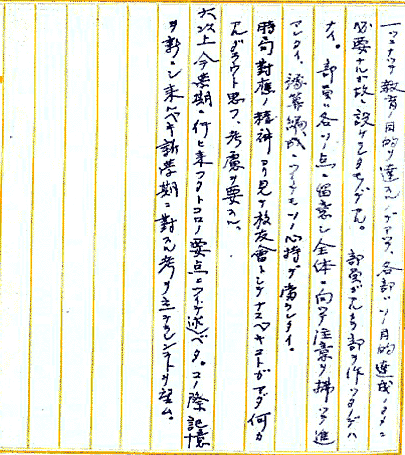 一ツニナツテ教育ノ目的ヲ達スルノデアツテ、各部ハソノ目的達成ノタメニ
必要ナルガ故ニ設ケラレタモノデアル。部員ガアルカラ部ヲ作ツタノデハ
ナイ。部員ハ各ソノ点ニ留意シ全体ニ向ツテ注意ヲ拂ツテ進
ミタイ。編成ニツイテモソノ心持デ当リタイ。
時局対應ノ精神ヨリ見テ校友會トシテナスベキコトガマダ何カ
アルダラウト思フ、考慮ヲ要スル。
大ソ以上今学期ニ何ヒ来ツタトコロノ要点ニツイテ述ベタ。コノ際記憶
ヲ新ニシ来ルベキ新学期ニ対スル考ヲ立テラレンコトヲ望ム。